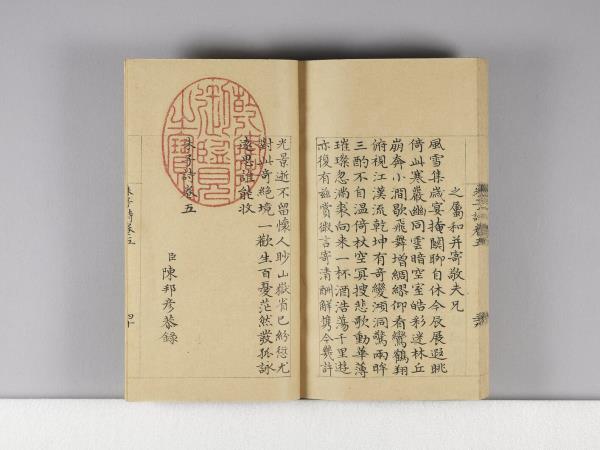 之屬和并寄敬夫兄
風雪集歲宴掩關聊自休今辰展遐眺
倚此寒巖幽同雲暗空室皓彩迷林丘
崩奔小澗歇飛舞增綢繆仰看鸞鶴翔
俯視江漢流乾坤有奇變澒洞驚兩眸
三酌不自溫倚杖空冥搜悲歌動華薄
璀璨忽滿裘向來一杯酒浩蕩千里遊
亦復有茲賞微言寄清酬解攜今幾許
光景逝不留懷人眇山嶽省己紛愆尤
對此奇絕境一歡生百憂茫然發孤詠
遠思誰能收
朱子詩卷五
臣陳邦彥恭錄
乾隆御覽之寶
朱子詩卷五
四十